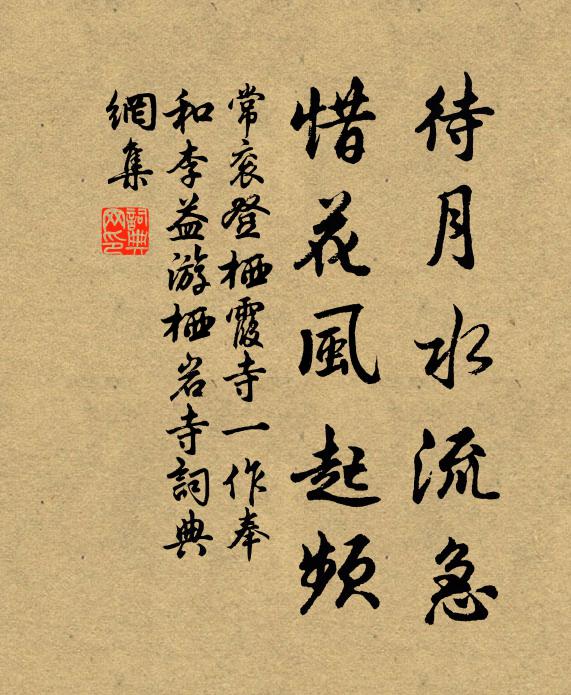 待月水流急
惜花風起頻
常袞登栖霞寺一作奉
和李益游栖岩寺詞典
網集
詞典
网印